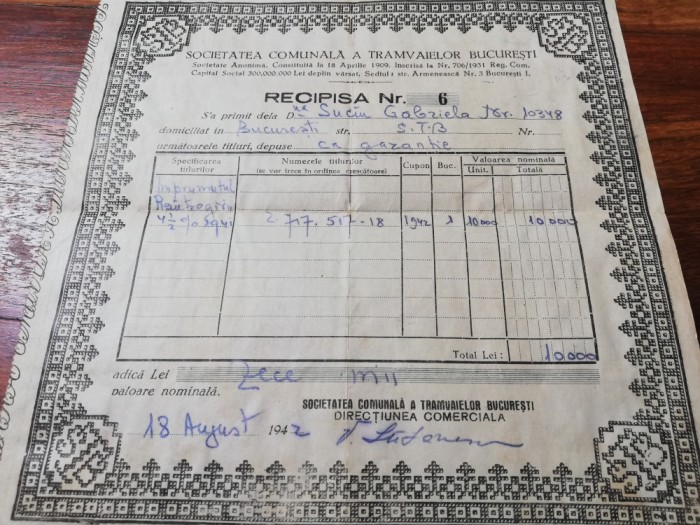 SOCIETATEA COMUNALĂ A TRAMVAIELOR BUCUREȘTI
Societate Anonimă, Constituită la 18 Aprilie 1909. Inscrisa la Nr. 706/1931 Reg. Com.
Capital Social 300,000.000 Lei deplin vărsat, Sediul: str. Armenească Nr. 3 București I.
RECIPISA Nr. 6
S'a primit dela D na Suciu Gabriela Nr. 10348
domiciliat in București str. S.T.B Nr.
următoarele titluri, depuse ca garanție
Specificarea titlurilor Numerele titlurilor (se vor trece în ordinea crescătoare) Cupon Buc. Valoarea nominală Unit. Totală
Imprumutul
Reîntregirii
4 1/2 % 1941 2.717.517-18 1942 1 10000 10,000
Total Lei: 10,000
adică Lei Zece mii
valoare nominală.
SOCIETATEA COMUNALĂ A TRAMVAIELOR BUCUREȘTI
DIRECȚIUNEA COMERCIALA
18 August 1942